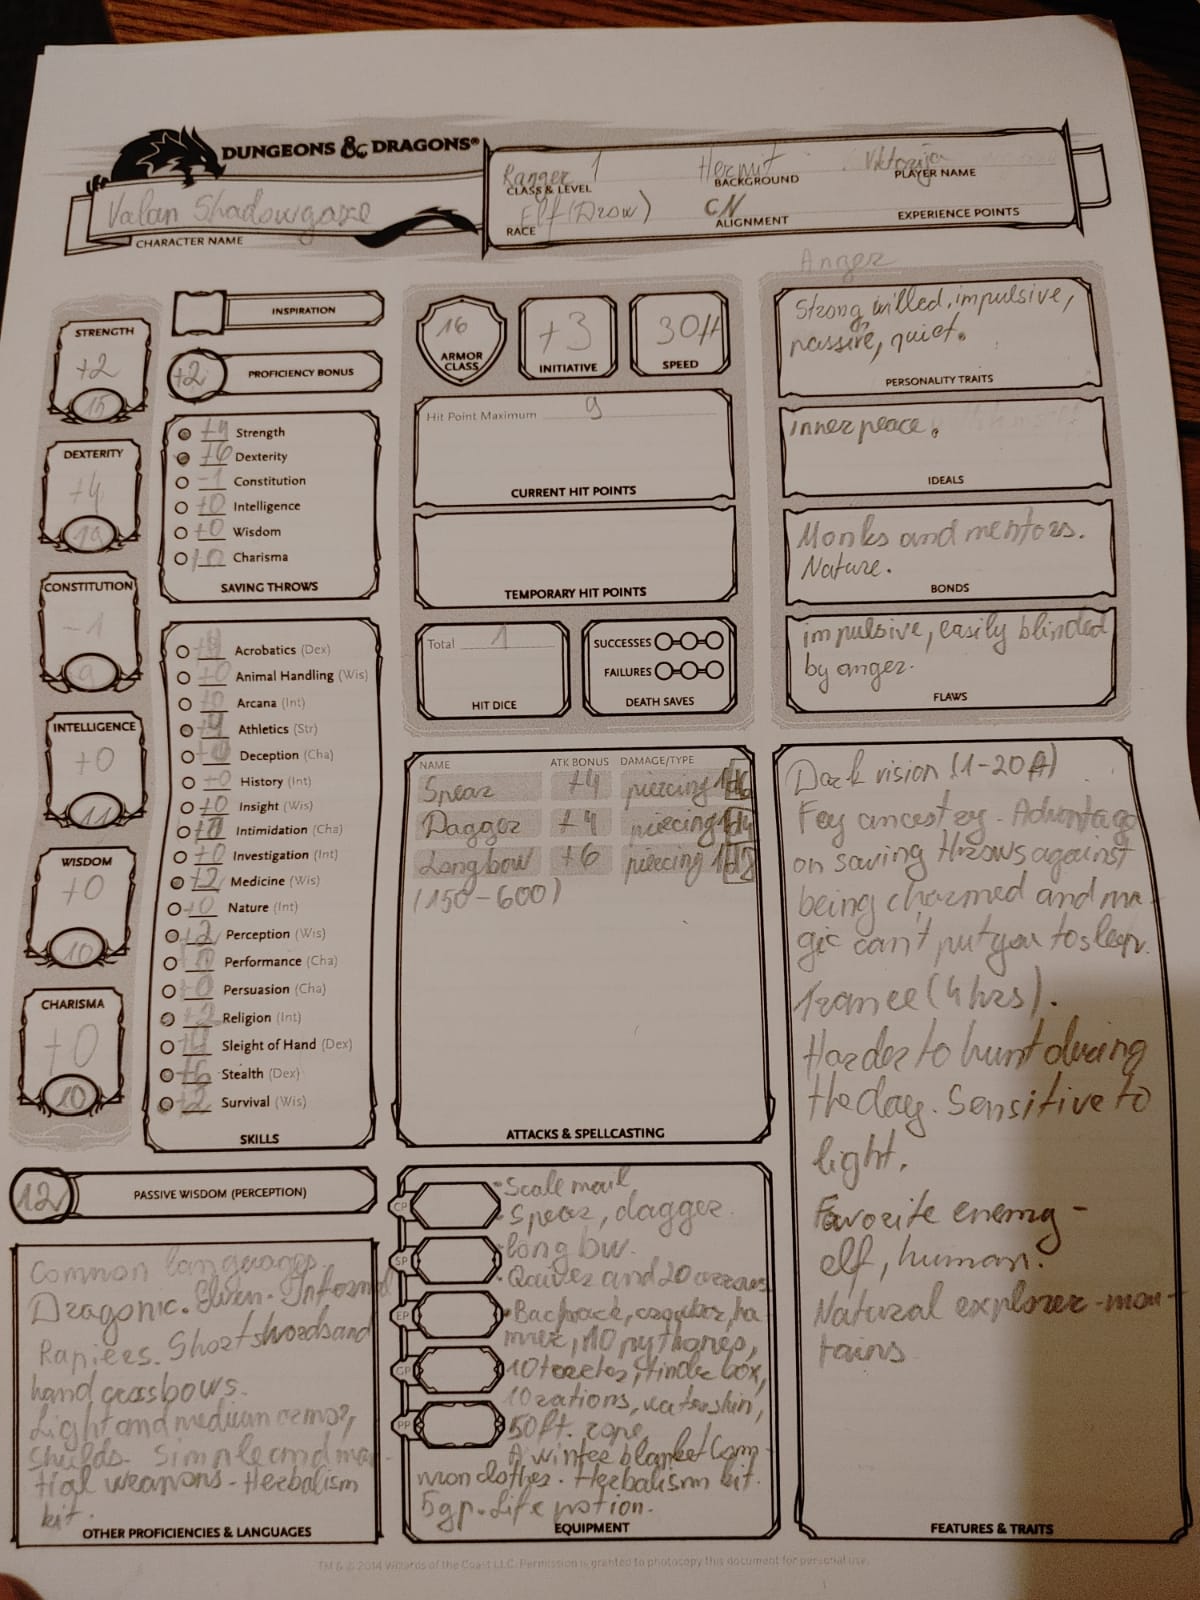 DUNGEONS & DRAGONS®
Valan Shadowgaze
CHARACTER NAME
Ranger 1
CLASS & LEVEL
Hermit
BACKGROUND
Viktorija
PLAYER NAME
Elf (Drow)
RACE
CN
ALIGNMENT
EXPERIENCE POINTS
STRENGTH
+2
15
DEXTERITY
+4
19
CONSTITUTION
-1
9
INTELLIGENCE
+0
11
WISDOM
+0
10
CHARISMA
+0
10
INSPIRATION
+2 PROFICIENCY BONUS
+4 Strength
+6 Dexterity
-1 Constitution
+0 Intelligence
+0 Wisdom
+0 Charisma
SAVING THROWS
Acrobatics (Dex)
+0 Animal Handling (Wis)
+0 Arcana (Int)
+4 Athletics (Str)
+0 Deception (Cha)
+0 History (Int)
+0 Insight (Wis)
+0 Intimidation (Cha)
+0 Investigation (Int)
+2 Medicine (Wis)
+0 Nature (Int)
+2 Perception (Wis)
Performance (Cha)
+0 Persuasion (Cha)
+2 Religion (Int)
+4 Sleight of Hand (Dex)
+6 Stealth (Dex)
+2 Survival (Wis)
SKILLS
12 PASSIVE WISDOM (PERCEPTION)
Common languages.
Dragonic. Elven. Infernal
Rapiers. Shortswords and
hand crassbows.
Light and medium armor,
shields. Simple and mar-
tial weapons - Herbalism
kit.
OTHER PROFICIENCIES & LANGUAGES
16
ARMOR
CLASS
+3
INITIATIVE
30ft
SPEED
Hit Point Maximum 9
CURRENT HIT POINTS
TEMPORARY HIT POINTS
Total 1
HIT DICE
SUCCESSES
FAILURES
DEATH SAVES
NAME ATK BONUS DAMAGE/TYPE
Spear +4 piercing 1d6
Dagger +4 piercing 1d4
Longbow +6 piercing 1d8
(150-600)
ATTACKS & SPELLCASTING
CP
SP
EP
GP
PP
• Scale mail
• Spear, dagger.
• long bw.
• Qauver and 20 arrows
• Backpack, crowbar, ha-
mmer, 10 pythones,
10 torches, tinder box,
10 rations, waterskin,
50ft. rope.
A winter blanket Com-
mon clothes. Herbalism kit.
5gp. Life potion.
EQUIPMENT
Anger
Strong willed, impulsive,
passive, quiet.
PERSONALITY TRAITS
inner peace.
IDEALS
Monks and mentors.
Nature.
BONDS
impulsive, easily blinded
by anger.
FLAWS
Dark vision (1-20ft)
Fey ancestry - Advantage
on saving throws against
being charmed and ma-
gic can't put you to sleep.
Trance (4 hrs).
Harder to hunt during
the day. Sensitive to
light.
Favorite enemy -
elf, human.
Natural explorer - moun-
tains
FEATURES & TRAITS
TM & © 2014 Wizards of the Coast LLC. Permission is granted to photocopy this document for personal use.